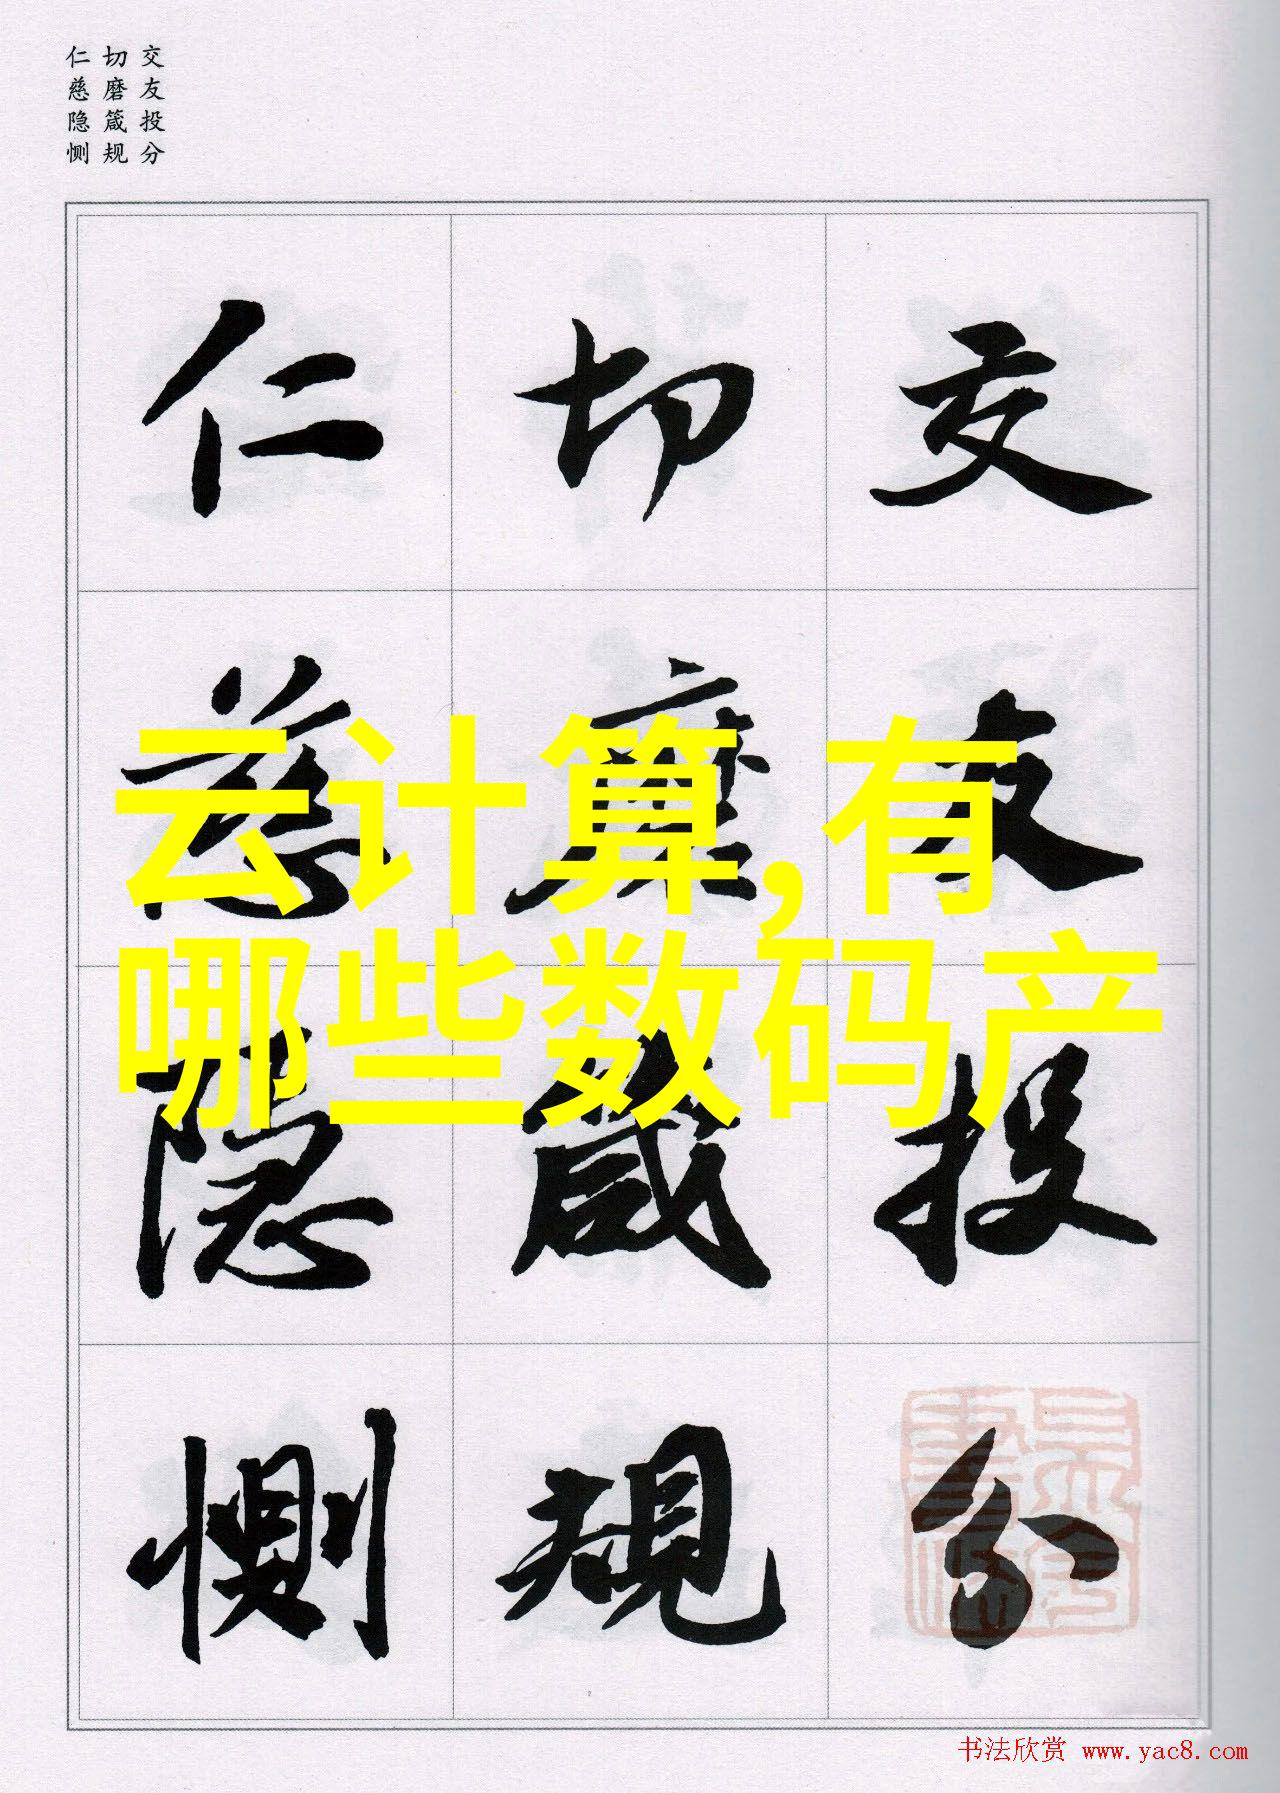 交友投分
切磨箴规
仁慈隐恻
交友投分
切磨箴規
仁慈隐恻
云计算,有
哪些数码产
书法欣赏 www.yac8.com